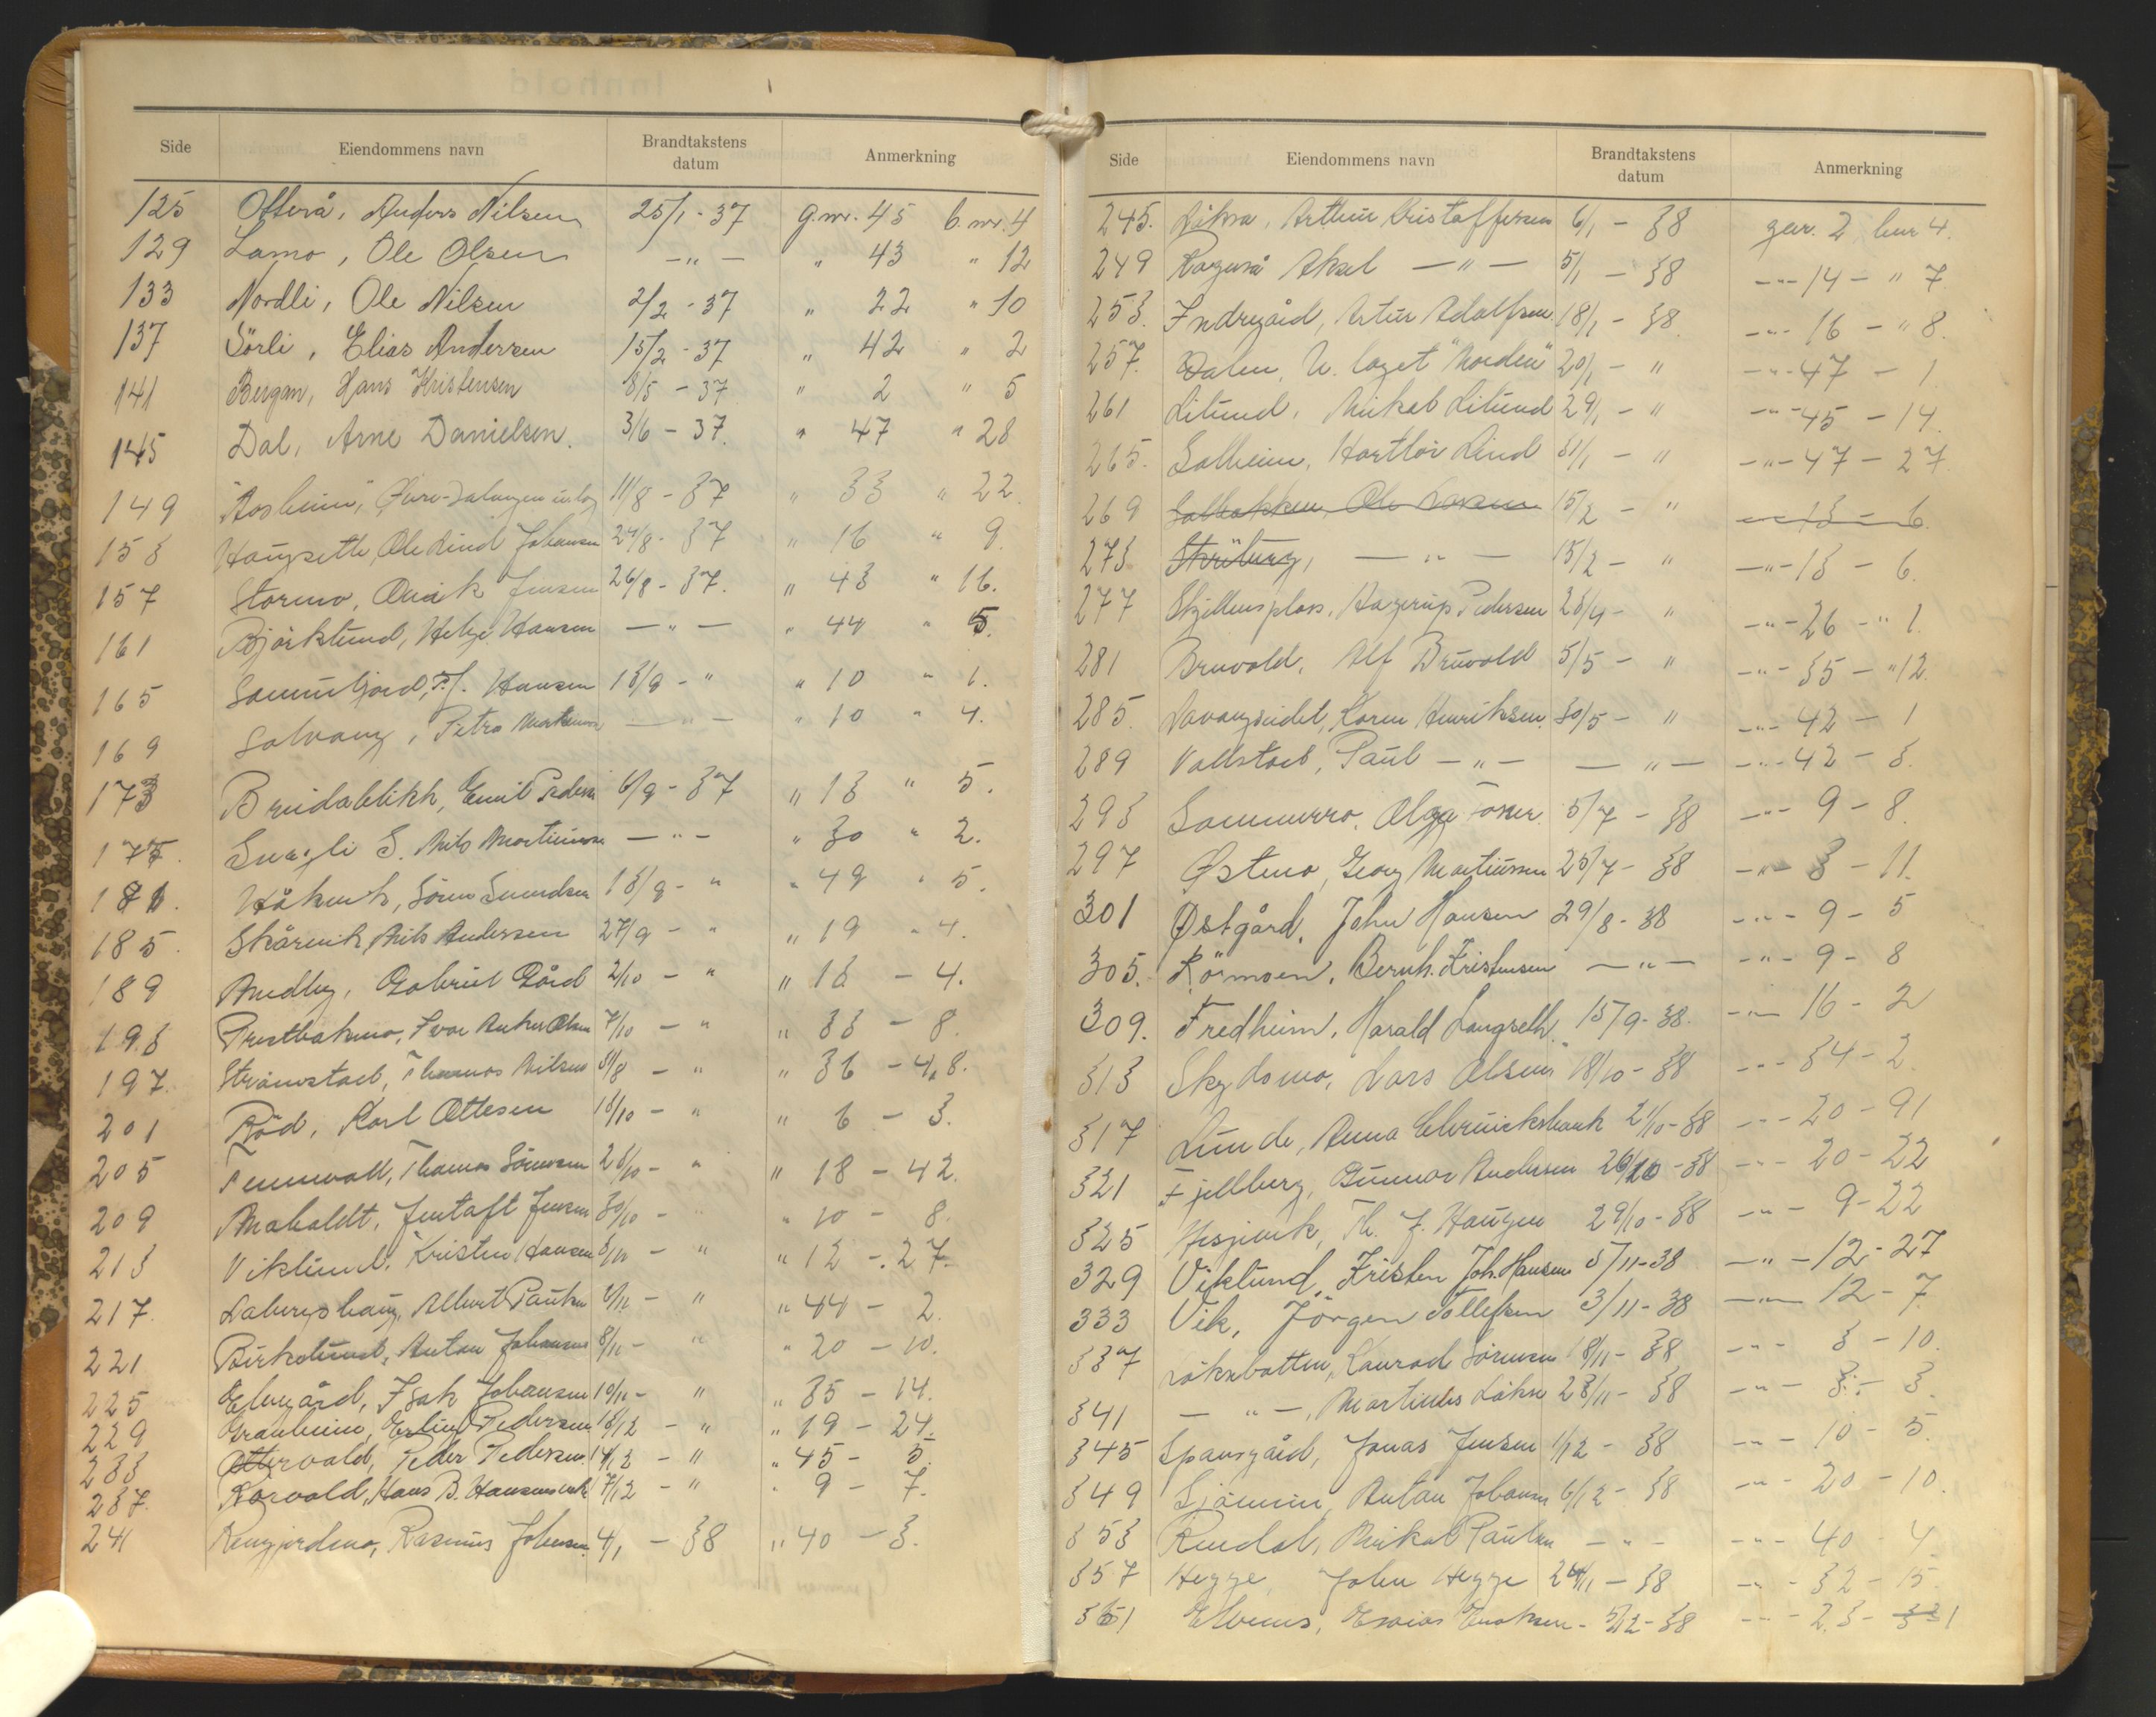 Side Eiendommens navn Brandtakstens datum Anmerkning
125 Otterå, Anders Nilsen 25/1 - 37 g.nr. 45 b.nr. 4
129 Lamo, Ole Olsen —"— " 43 " 12
133 Nordli, Ole Nilsen 2/2 - 37 " 22 " 10
137 Sörli, Elias Andersen 15/2 - 37 " 42 " 2
141 Bergan, Hans Kristensen 8/5 - 37 " 2 " 5
145 Dal, Arne Danielsen. 3/6 - 37. " 47 " 28
149 "Aasheim", Øvre-Salangen 11/8 - 37 " 33 " 22.
153 Haugseth, Ole Lind Johansen 24/8 - 37 " 16 " 9.
157 Stormo, Jensen 26/8 - 37. " 43 " 16.
161 Björklund, Helge Hansen —"— " 44 " 5.
165 Hansen 13/9 - " " 10 " 1.
169 Solvang, Petra —"— " 10 " 4.
173 Breidablikk, Emil 6/9 - 37 " 13 " 5.
177. S. Nils —"— " 30 " 2.
181. 13/9 - " " 49 " 5.
185. Skårvik, Nils Andersen 27/9 - " " 19 " 4.
189 Medby, Gabriel Gård 2/10 - " " 13 - 4.
193 Prestbakmo, Olsen 7/10 - " " 33 - 8.
197. Straumstad, Thomas Nilsen - " " 36 - 4,8.
201 Röd, Karl Ottesen 13/10 - " " 6 - 3.
205 Tennevoll, Thomas Sörensen 23/10 - " " 18 - 42.
209 Maholdt, Jentoft Jensen 30/10 - " " 10 - 8.
213 Viklund, Kristen Hansen - " " 12 - 27.
217. Labergshaug, Albert - " " 44 - 2.
221 Birkelund, Anton Johansen 8/11 - " " 20 - 10.
225 Elvegård, Isak Johansen 10/11 - " " 35 - 14.
229 Granheim, Erling Pedersen 13/12 - " " 19 - 24.
233 Ottervold, Peder Pedersen 14/12 - " " 45 - 5.
237. Korvold, Hans B. 17/12 - " " 9 - 7.
241 Rasmus Johansen 4/1 - 38 " 40 - 3.
Side Eiendommens navn Brandtakstens datum Anmerkning
245. Löksa, Arthur Kristoffersen 6/1 - 38 gnr. 2 bnr 4.
249 Aksel —"— 5/1 - 38 —"— 14 - " 7
253. Indregård, Artur Adolfsen 18/1 - 38 —"— 16 - " 8.
257. Dalen, U. laget "Norden" 20/1 - " —"— 47 - 1.
261 Lilund, Mikal Lilund 29/1 - " —"— 45 - 14.
265. Solheim, Lind 31/1 - " —"— 47 - 27.
269 Solbakken, Ole Larsen 15/2 - " —"— 13 - 6.
273. —"— 15/2 - " —"— 13 - 6.
277 Skjellensplass, Hagerup Pedersen 23/4 - " —"— 26 - " 1.
281 Bruvold, Alf Bruvold 5/5 - " —"— 35 - " 12.
285. Lavangseidet, Karen Henriksen 30/5 - " —"— 42 - 1
289 Vollstad, Paul —"— —"— —"— 42 - 3.
293 Sommerro, Olga 5/7 - 38 —"— 9 - 8.
297 Østmo, Georg Martiussen 25/7 - 38 —"— 3 - 11.
301 Østgård, John Hansen 29/8 - 38 —"— 9 - 5
305. Römoen, Bernh. Kristensen —"— —"— 9 - 8
309. Fredheim, Harald Langseth. 15/9 - 38. —"— 16 - 2
313 Lars Olsen 18/10 - 38 —"— 34 - 2.
317 Lunde, Anna 21/10 - 38 —"— 20 - 91
321 Fjellberg, Gunnar Andersen 26/10 - 38 —"— 20 - 22
325 Hesjevik, Th. J. Haugen 29/10 - 38 —"— 9 - 22
329 Viklund, Kristen Joh. Hansen 5/11 - 38 —"— 12 - 27
333 Vik, Jörgen Tollefsen 3/11 - 38 —"— 12 - 7
337 Löksebotten, Konrad Sörensen 18/11 - 38 —"— 3 - 10.
341 —"—, Martinus Lökse 23/11 - 38 —"— 3 - 3.
345 Spansgård, Jonas Jensen 1/12 - 38 —"— 10 - 5.
349 Anton Johansen 6/12 - 38 —"— 20 - 10.
353 Rendal, Mikal Paulsen —"— —"— 40 - 4
357 Hegge, John Hegge 24/11 - 38 —"— 32 - 15.
361 Elvenes, Esaias Enoksen - 5/12 - 38 —"— 23 - 1